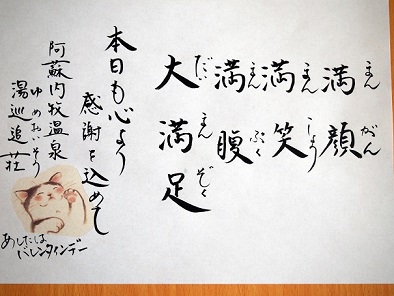 満顔
まんがん
満笑
まんしょう
満腹
まんぷく
大満足
だいまんぞく
本日も心より
感謝を込めて
阿蘇内牧温泉
ゆめおいそう
湯巡追荘
あしたは
バレンタインデー